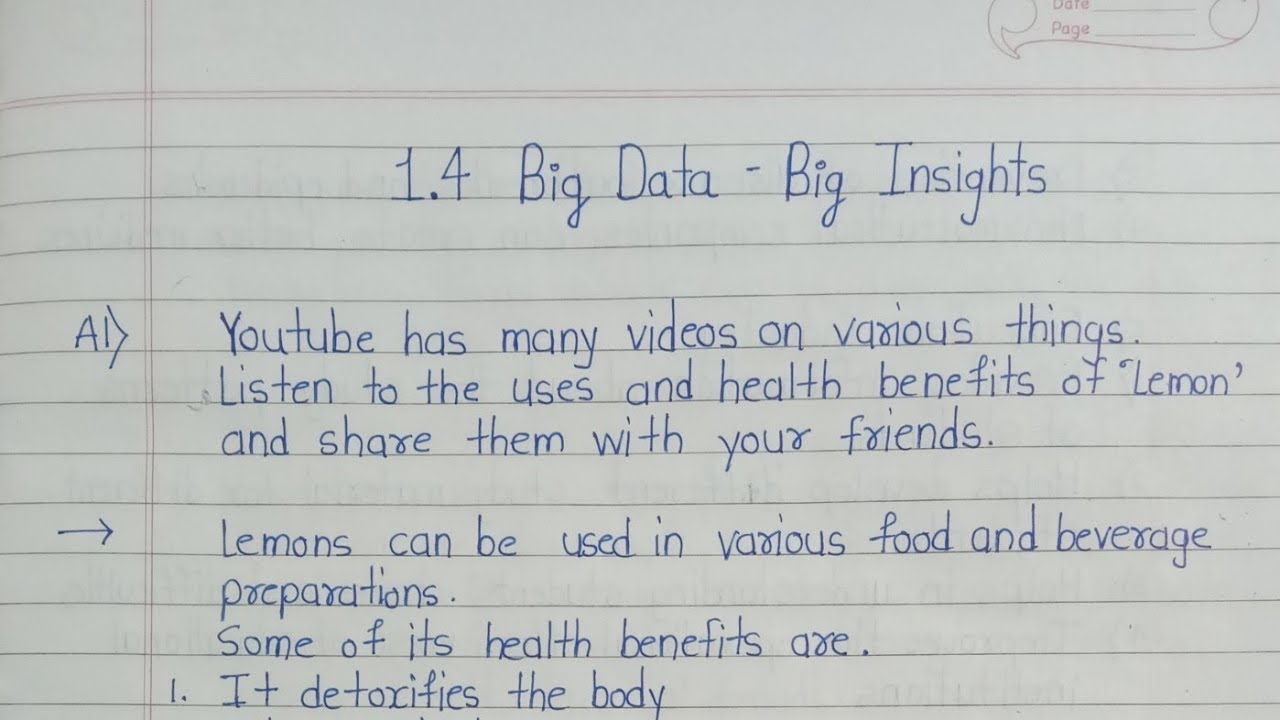 Date
Page
1.4 Big Data - Big Insights
A1) Youtube has many videos on various things.
Listen to the uses and health benefits of 'Lemon'
and share them with your friends.
→ Lemons can be used in various food and beverage
preparations.
Some of its health benefits are.
1. It detoxifies the body